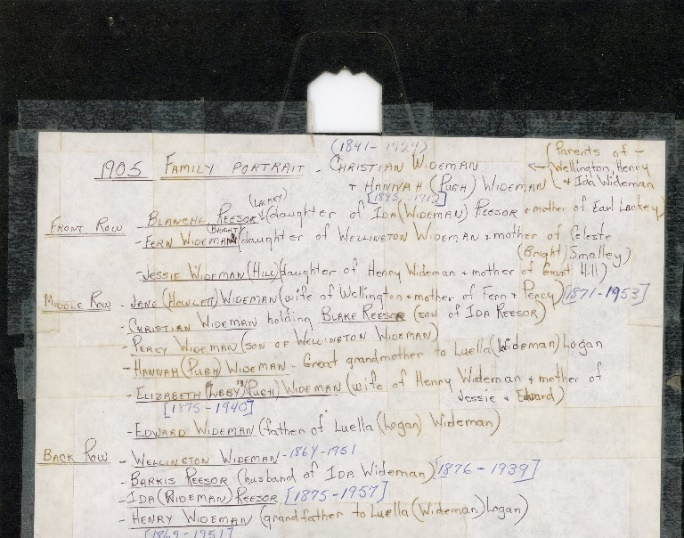 (1841-1924)
1905 FAMILY PORTRAIT - CHRISTIAN WIDEMAN
+ HANNAH (PUGH) WIDEMAN
(Parents of -
Wellington, Henry
+ Ida Wideman
(LACKEY)
FRONT ROW - BLANCHE REESOR (daughter of IDA (WIDEMAN) REESOR + mother of Earl Lackey)
(BRIGHT)
- FERN WIDEMAN (daughter of WELLINGTON WIDEMAN + mother of Celeste
(Bright) Smalley)
- JESSIE WIDEMAN (HILL) (daughter of Henry Wideman + mother of Grant Hill)
MIDDLE ROW - JANE (HOWLETT) WIDEMAN (wife of Wellington + mother of Fern + Percy) [1871-1953]
- CHRISTIAN WIDEMAN holding BLAKE REESOR (son of IDA REESOR)
- PERCY WIDEMAN (SON OF WELLINGTON WIDEMAN)
- HANNAH (PUGH) WIDEMAN - Great grandmother to Luella (Wideman) Logan
- ELIZABETH ("LIBBY") (PUGH) WIDEMAN (wife of Henry Wideman + mother of
Jessie + Edward)
[1875-1940]
- EDWARD WIDEMAN (father of Luella (Logan) Wideman)
BACK ROW - WELLINGTON WIDEMAN - 1864-1951
- BARKIS REESOR (husband of IDA Wideman) [1876-1939]
- IDA (WIDEMAN) REESOR [1875-1957]
- HENRY WIDEMAN (grandfather to Luella (Wideman) Logan)
[1869-1951]